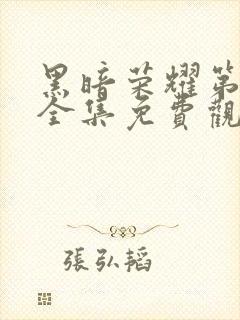 黑暗荣耀第
全集免費觀
張弘韜